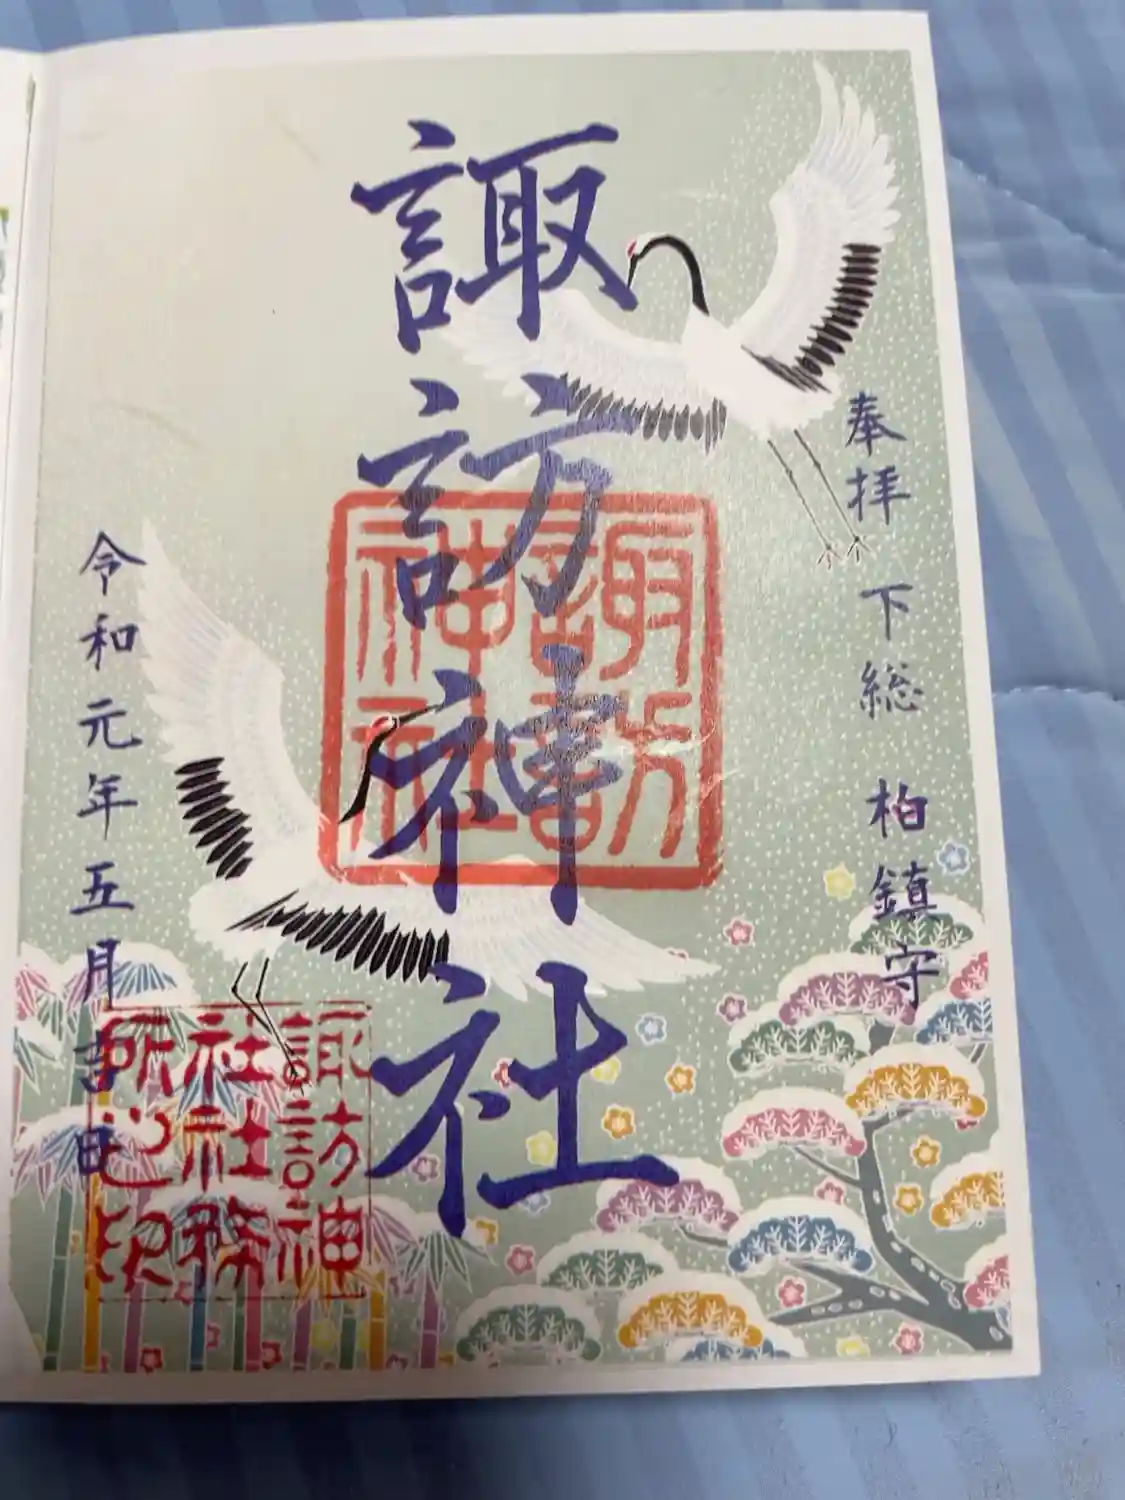 奉拝 下総 柏鎮守
諏訪神社
諏訪
神社
令和元年五月吉日
諏訪神
社社務
所之印